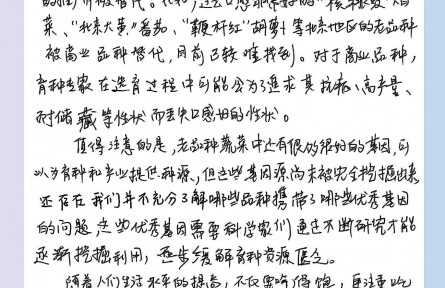 的组价被替代。比如，过去口感非常好的"核桃纹"白
菜、"北京大黄"番茄、"鞭杆红"胡萝卜等北京地区的老品种
被商业品种替代，目前已较难找到。对于商业品种，
育种专家在选育过程中可能会为了追求其抗病、高产量、
耐储藏等性状而丢失口感好的性状。
值得注意的是，老品种蔬菜中还有很多很好的基因，可
以为育种和产业提供种源，但这些基因源尚未被完全挖掘出来，
还存在我们并不充分了解哪些品种携带了哪些优秀基因
的问题，这些优秀基因需要科学家们通过不断研究才能
逐渐挖掘利用，逐步缓解育种资源匮乏。
随着人们生活水平的提高，不仅要吃得饱，更注重吃